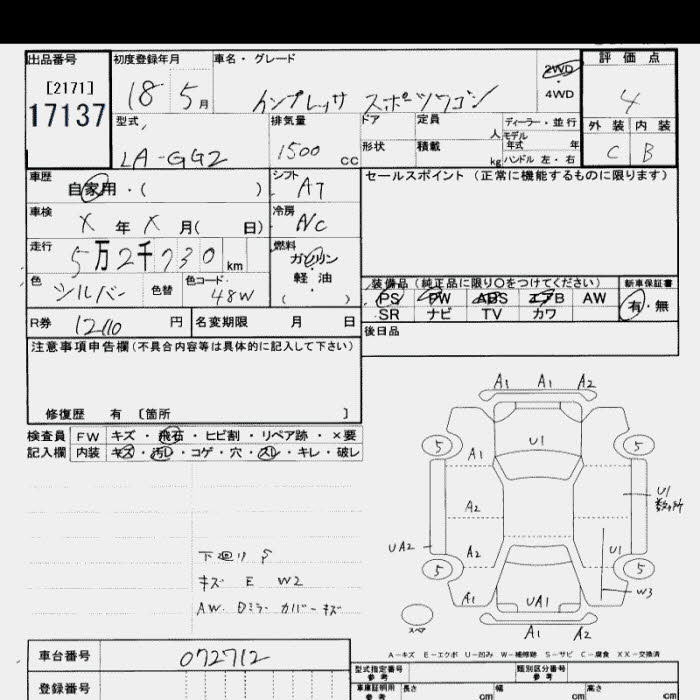 出品番号 初度登録年月 車名・グレード 2WD 評価点
[2171] 18 5月 インプレッサ スポーツワゴン 4WD 4
17137
型式 排気量 ドア 定員 人 ディーラー・並行 外装 内装
LA-GG2 1500 cc 形状 積載 kg モデル年式 年 C B
ハンドル 左・右
車歴 自家用・( ) シフト AT セールスポイント (正常に機能するものに限ります)
車検 X 年 X 月( 日) 冷房 A/C
走行 5万2千730 km 燃料 ガソリン
色 シルバー 色替 色コード 48W 軽油
( )
装備品 (純正品に限り〇をつけてください) 新車保証書
PS PW ABS エアB AW 有・無
SR ナビ TV カワ
R券 12110 円 名変期限 月 日 後日品
注意事項申告欄 (不具合内容等は具体的に記入して下さい)
修復歴 有 〔箇所 〕
検査員 FW キズ・飛石・ヒビ割・リペア跡・×要
記入欄 内装 キズ・汚レ・コゲ・穴・スレ・キレ・破レ
A1 A1 A2
5 U1 5
A1
A2 U1 数ヶ所
UA2 A2 U1
5 5
A1 UA1 W3
A1 A2
スペア
下廻り S
キズ E W2
AW. Dミラー カバーキズ
A-キズ E-エクボ U-凹み W-補修跡 S-サビ C-腐食 XX-交換済
車台番号 072712
登録番号
型式指定番号 参考 類別区分番号 参考
車庫証明用 参考 長さ cm 幅 cm 高さ cm